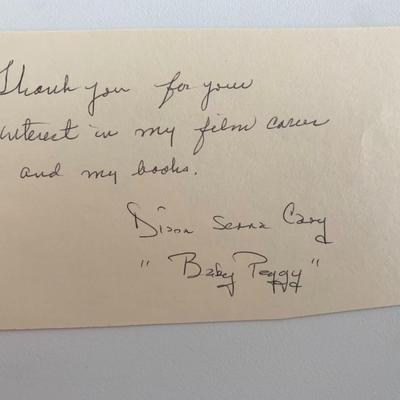 Thank you for your
interest in my film career
and my books.
Diana Serra Cary
"Baby Peggy"